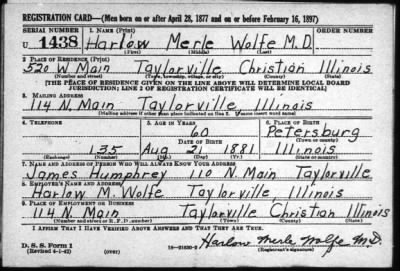 REGISTRATION CARD—(Men born on or after April 28, 1877 and on or before February 16, 1897)
SERIAL NUMBER 1. NAME (Print) ORDER NUMBER
U 1438 Harlow Merle Wolfe M.D.
(First) (Middle) (Last)
2. PLACE OF RESIDENCE (Print)
520 W Main Taylorville Christian Illinois
(Number and street) (Town, township, village, or city) (County) (State)
[THE PLACE OF RESIDENCE GIVEN ON THE LINE ABOVE WILL DETERMINE LOCAL BOARD
JURISDICTION; LINE 2 OF REGISTRATION CERTIFICATE WILL BE IDENTICAL]
3. MAILING ADDRESS
114 N. Main Taylorville Illinois
[Mailing address if other than place indicated on line 2. If same insert word same]
4. TELEPHONE 5. AGE IN YEARS 6. PLACE OF BIRTH
60 Petersburg
DATE OF BIRTH (Town or county)
135 Aug 21 1881 Illinois
(Exchange) (Number) (Mo.) (Day) (Yr.) (State or country)
7. NAME AND ADDRESS OF PERSON WHO WILL ALWAYS KNOW YOUR ADDRESS
James Humphrey 110 N. Main Taylorville
8. EMPLOYER'S NAME AND ADDRESS
Harlow M. Wolfe Taylorville, Illinois
9. PLACE OF EMPLOYMENT OR BUSINESS
114 N. Main Taylorville Christian Illinois
(Number and street or R. F. D. number) (Town) (County) (State)
I AFFIRM THAT I HAVE VERIFIED ABOVE ANSWERS AND THAT THEY ARE TRUE.
D. S. S. Form 1
(Revised 4-1-42) 16—21630-2 Harlow Merle Wolfe M.D.
(Registrant's signature)